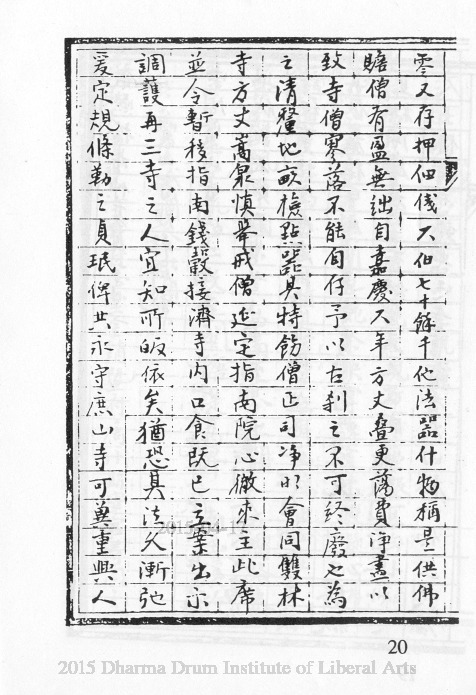 零又存押佃伐六伯七十餘千他法器什物稱是供佛
贍僧有盈無絀自嘉慶六年方丈叠更蕩費淨盡以
致寺僧寥落不能自存予以古刹之不可終廢也為
之清釐地畝檢點器具特飭僧正司净明會同雙林
寺方丈嵩泉慎舉戒僧延定指南院心微來主此席
並令暫移指南錢穀接濟寺内口食既已立案出示
調護再三寺之人宜知所皈依矣猶恐其法久漸弛
爰定規條勒之貞珉俾其永守庶山寺可冀重興人
20
2015 Dharma Drum Institute of Liberal Arts